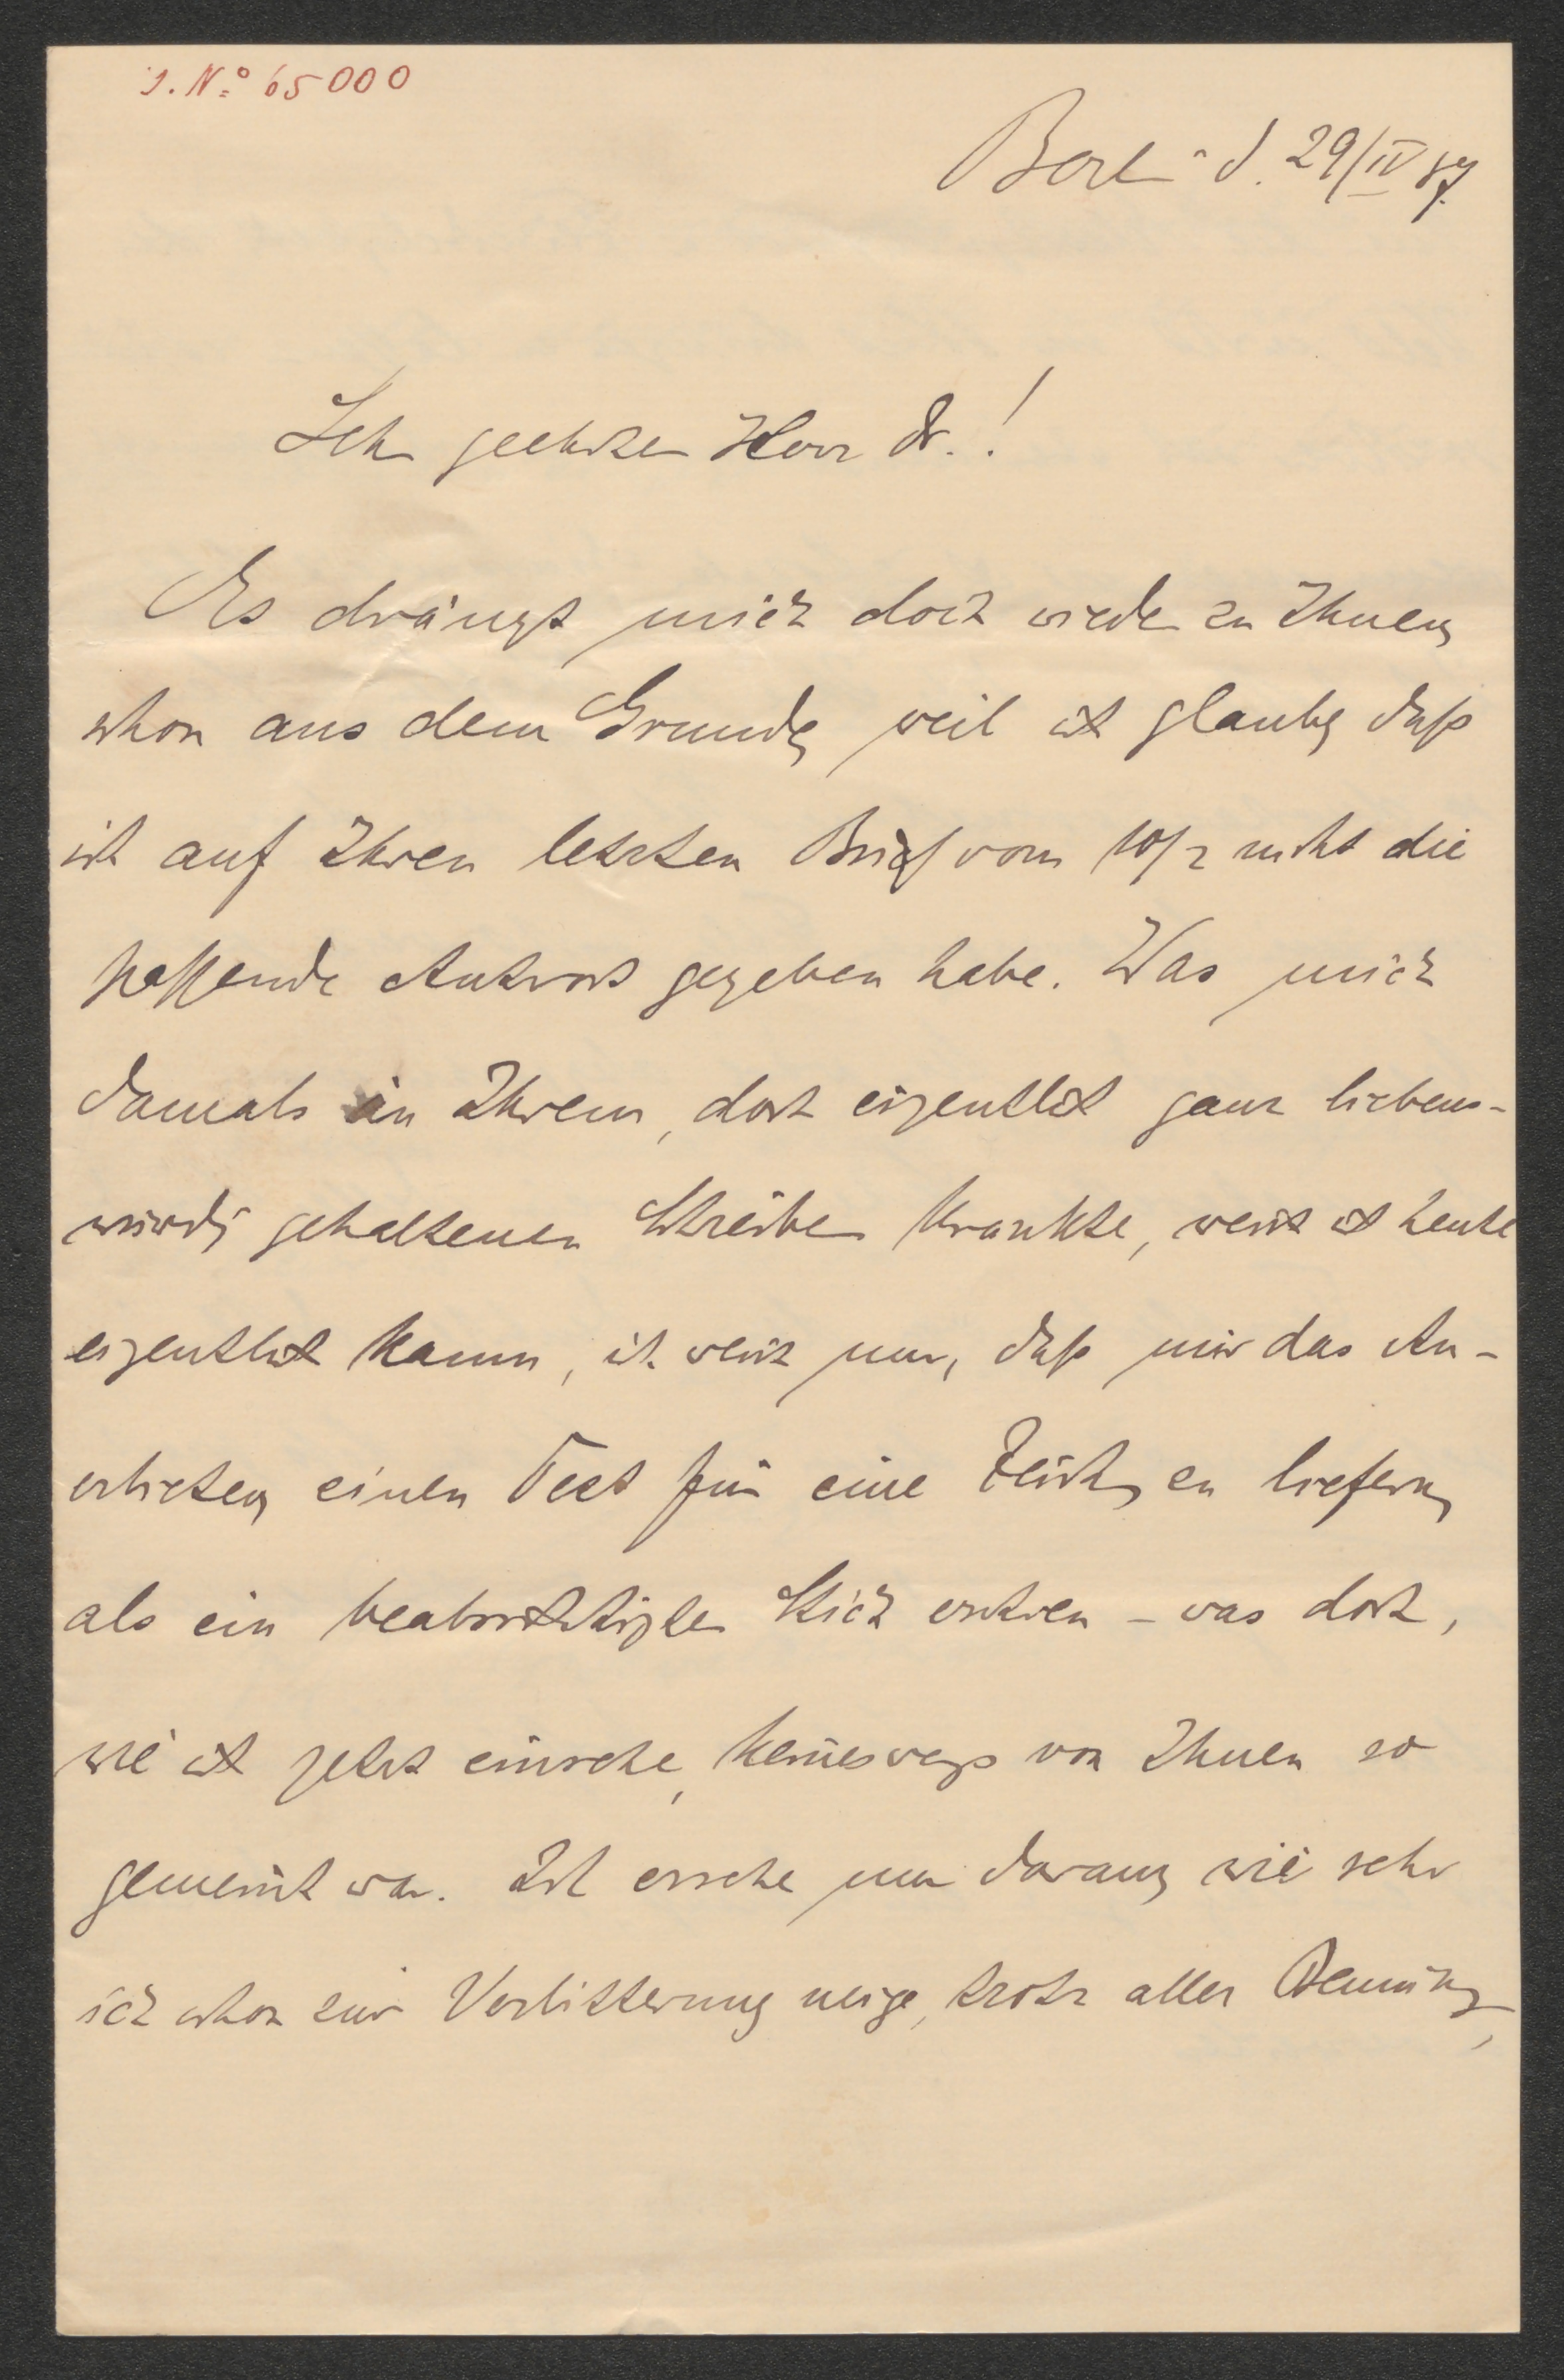 J. Nº 65000
Berlin d. 29/IV 87.
Sehr geehrter Herr Dr.!
Es drängt mich doch wieder zu Ihnen,
schon aus dem Grunde, weil ich glaube, daß
ich auf Ihren letzten Brief vom 10/2 nicht die
passende Antwort gegeben habe. Was mich
damals in Ihrem, doch eigentlich ganz liebens-
würdig gehaltenen Schreiben kränkte, weiß ich heute
eigentlich kaum, ich weiß nur, daß mir das An-
erbieten, einen Text für eine Zeichng zu liefern,
als ein beabsichtigter Stich erschien – was doch,
wie ich jetzt einsehe, keineswegs von Ihnen so
gemeint war. Ich ersehe nur daraus, wie sehr
ich schon zur Verbitterung neige, trotz aller Bemühg,